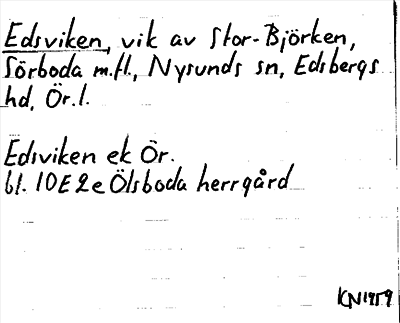 Edsviken, vik av Stor-Björken,
Sörboda m.fl., Nysunds sn, Edsbergs
hd, Ör.l.
Edsviken ek Ör.
bl. 10E2e Ölsboda herrgård
KN1959